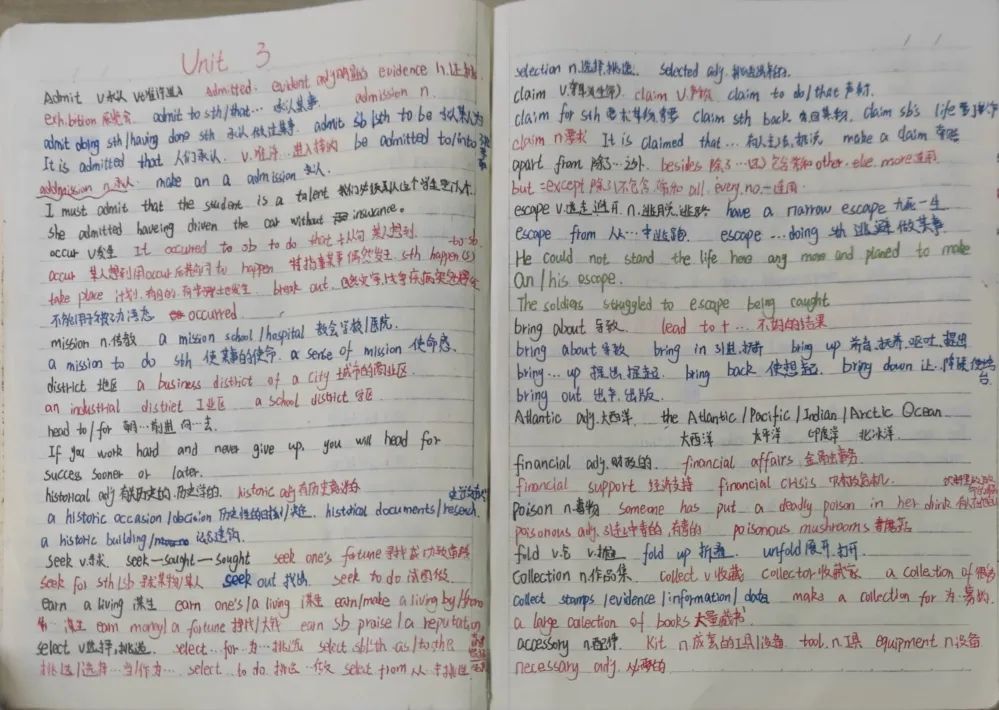 Unit 3
Admit v.承认 vt.准许进入 admitted. evident adj.明显的 evidence n.证据
exhibition 展览会. admit to sth/that… 承认某事 admission n.
admit doing sth/having done sth 承认做过某事. admit sb/sth to be 承认某人为
It is admitted that 人们承认. v.准许…进入接纳 be admitted to/into
addmission n.承认. make an a admission 承认.
I must admit that the student is a talent 我们必须承认这个学生是个人才.
She admitted haveing driven the car without insurance.
occur v.发生 It occurred to sb to do that +从句 某人想到.
occur 某人想到用occur后若为 to happen 特指某事偶然发生 sth happen(s) to sb.
take place 计划,有目的,有安排地发生. break out.
不能用于被动语态 occurred.
mission n.传教 a mission school/hospital 教会学校/医院.
a mission to do sth 使某事的使命. a sense of mission 使命感.
district 地区 a business district of a city 城市的商业区.
an industrial district 工业区 a school district 学区.
head to/for 朝…前进 向…去.
If you work hard and never give up, you will head for
success sooner or later.
historical adj.有关历史的.历史学的. historic adj.有历史意义的
a historic occasion/decision 历史性的时刻/决定. historical documents/research.
a historic building/ 古建筑.
seek v.寻求. seek—sought—sought seek one's fortune 寻找成功致富路
seek for sth/sb 寻求某物/某人 seek out 找出. seek to do 试图做
earn a living 谋生 earn one's/a living 谋生 earn/make a living by/from
谋生 earn money/a fortune 挣钱/大钱 earn sb praise/a reputation
select v.选择,挑选. select…for 为…挑选 select sb/sth as/to the
挑选/选择…当/作为… select…to do 挑选…做 select from 从…中挑选
selection n.选择,挑选. selected adj.挑选出来的.
claim v.夺去(生命) claim v.声称 claim to do/that 声称.
claim for sth 要求某物索要 claim sth back 要回某物. claim sb's life 夺走
claim n.要求 It is claimed that…有人主张,据说. make a claim 索赔
apart from 除了…之外. besides 除了…(还) 包含常和other. else. more连用
but =except 除了(不包含) 常和all. every. no.—连用
escape v.逃走 避开. n.逃脱.逃路 have a narrow escape 九死一生
escape from 从…中逃跑. escape …doing sth 逃避做某事
He could not stand the life here ang more and planed to make
an/his escape.
The soldiers struggled to escape being caught
bring about 导致 lead to +…不好的结果
bring about 导致 bring in 引进.挣 bring up 养育.抚养.呕吐.提出
bring…up 提出.提起. bring back 使想起. bring down 让…降低 使垮台
bring out 出产.出版.
Atlantic adj.大西洋. the Atlantic/Pacific/Indian/Arctic Ocean
大西洋 太平洋 印度洋 北冰洋.
financial adj.财政的. financial affairs.金融事务
financial support 经济支持 financial crisis
poison n.毒物 someone has put a deadly poison in her drink
poisonous adj.引起中毒的,有毒的 poisonous mushrooms 毒蘑菇
fold v. fold up 折叠 unfold 展开.打开
collection n.作品集. collect v.收藏 collector 收藏家 a collection of
collect stamps/evidence/information/data make a collection for 为…募款
a large calection of books 大量藏书
accessory n.配件. kit n.成套的工具/设备 tool n.工具 equipment n.设备
necessary adj.必要的